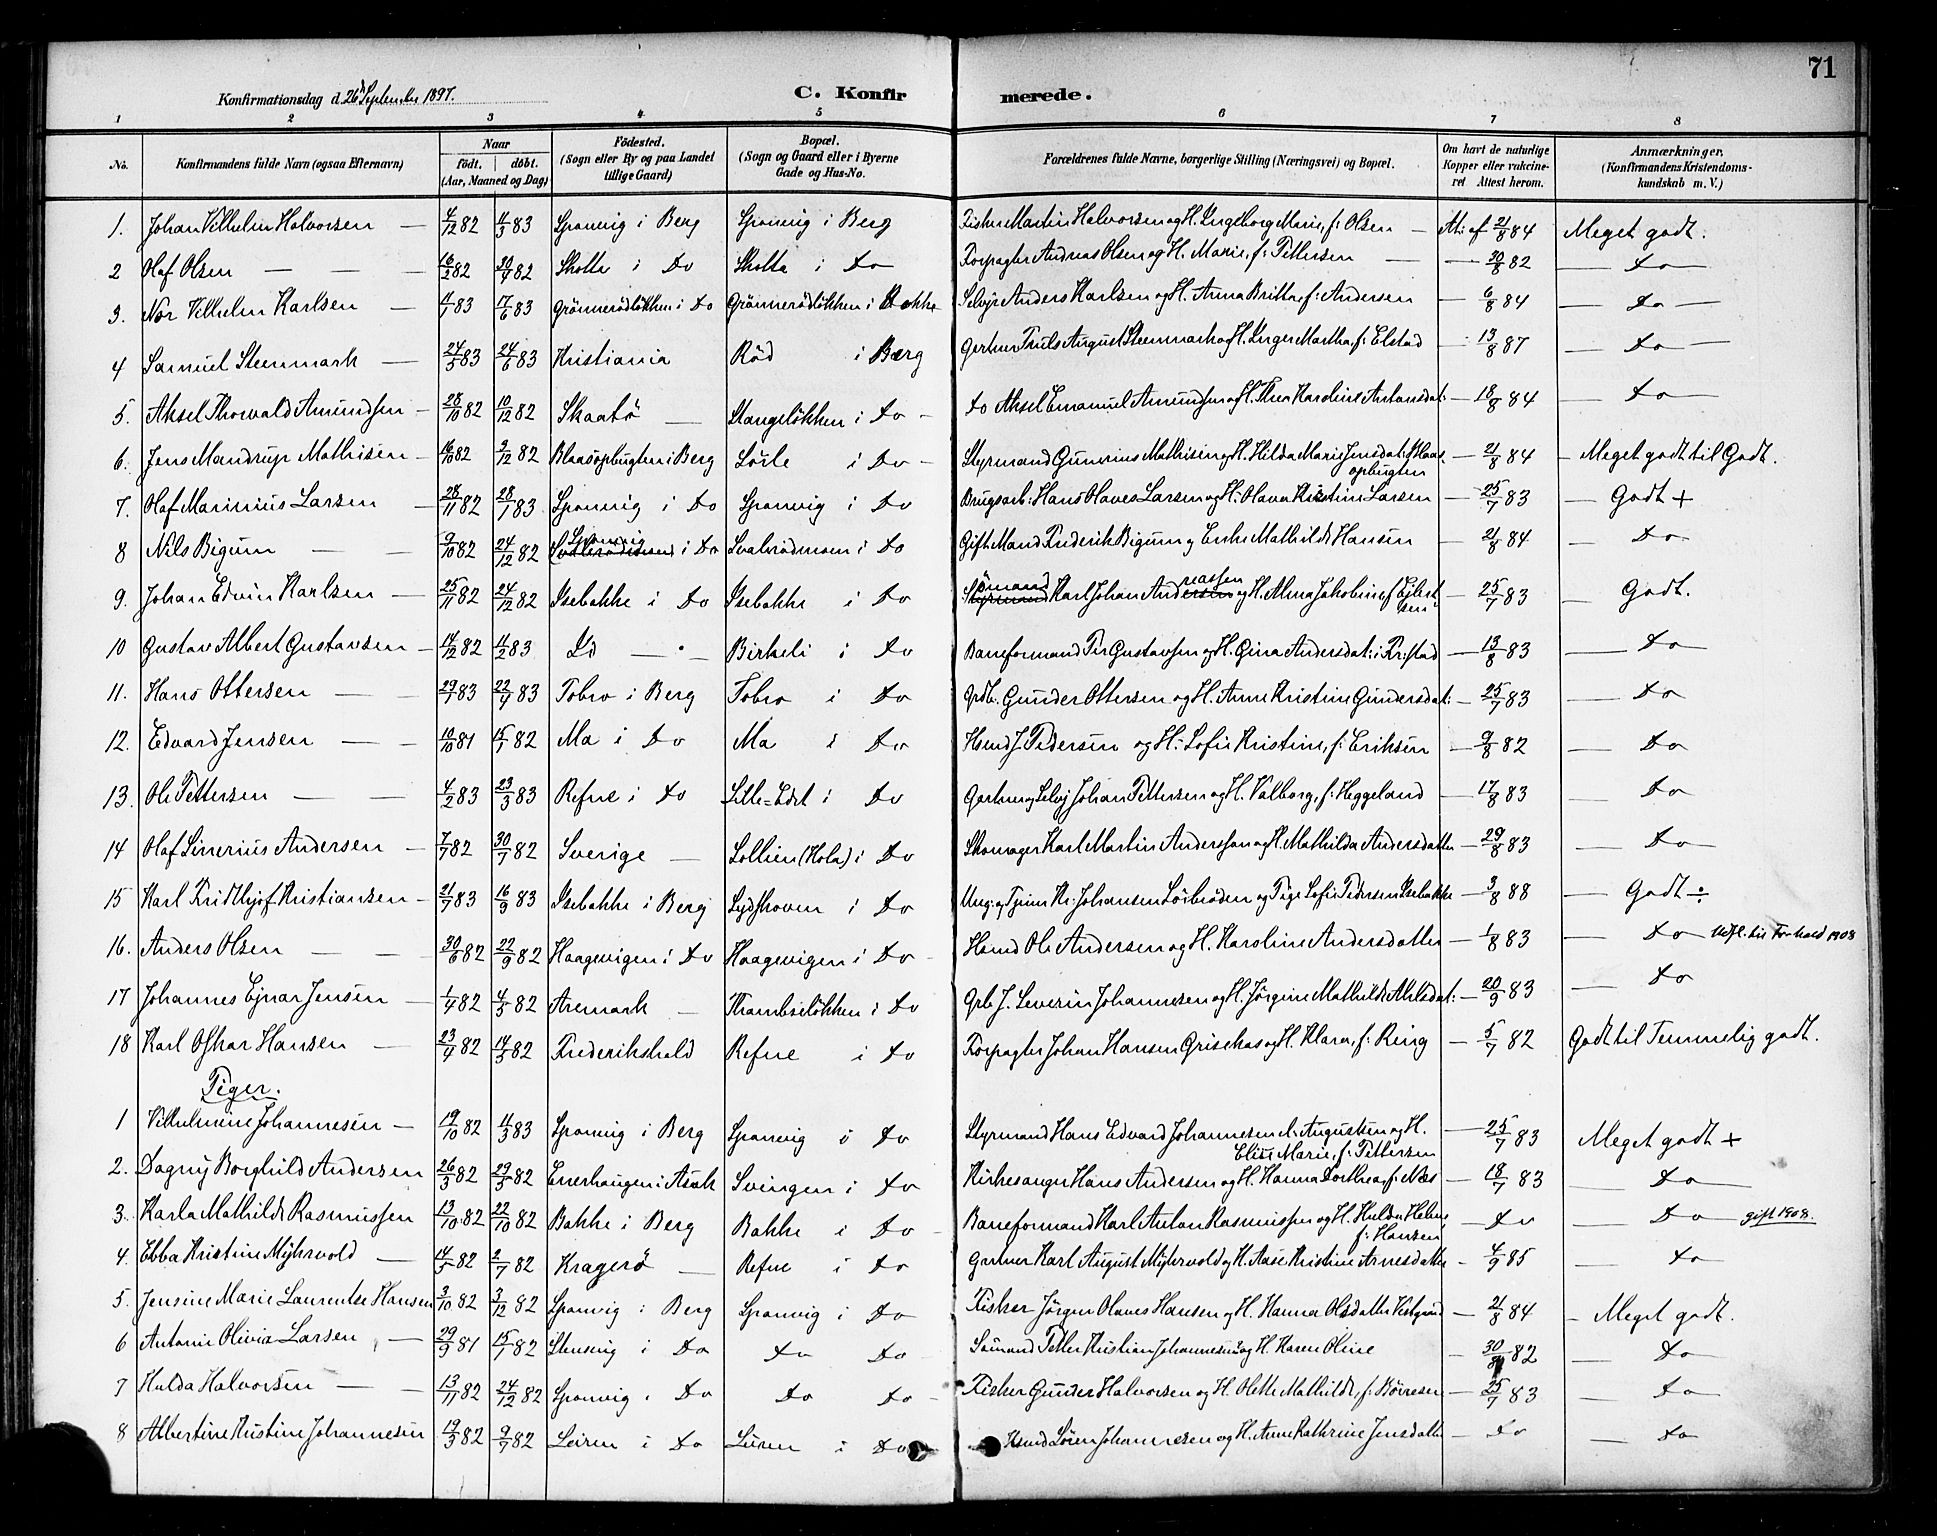 71
Konfirmationsdag d. 26 September 1897.
C. Konfirmerede.
1 2 3 4 5 6 7 8
No. Konfirmandens fulde Navn (ogsaa Efternavn) Naar födt. döbt. (Aar, Maaned og Dag) Födested. (Sogn eller By og paa Landet tillige Gaard) Bopæl. (Sogn og Gaard eller i Byerne Gade og Hus-No. Forældrenes fulde Navne, borgerlige Stilling (Næringsvei) og Bopæl. Om havt de naturlige Kopper eller vakcineret Attest herom. Anmærkninger. (Konfirmandens Kristendomskundskab m. V.)
1. Johan Vilhelm Halvorsen — 4/12 82 11/3 83 Sponvig i Berg Sponvig i Berg Fisker Martin Halvorsen og H. Ingeborg Marie, f: Olsen — At: af 21/8 84 Meget godt.
2 Olaf Olsen — — — 16/2 82 20/4 82 Skolta i Do Skolta i Do Forpagter Andreas Olsen og H. Marie, f: Pettersen — — 30/8 82 — Do —
3. Nor Vilhelm Karlsen — 4/1 83 17/6 83 Grönnerödlökken i Do Grönnerödlökken i Bakke Selvejr Anders Karlsen og H. Anna Britta, f: Andersen — 6/8 84 — Do —
4 Samuel Steenmark — 24/5 83 24/6 83 Kristiania Röd i Berg Gartner Truls August Steenmark og H. Inger Martha, f: Elstad — 13/8 87 — Do —
5. Aksel Thorvald Amundsen — 28/10 82 10/12 82 Skaatö — Stangelökken i Do — Do Aksel Emanuel Amundsen og H. Thea Karoline Antonsdat: — 18/8 84 — Do —
6. Jens Mandrup Mathisen — 16/10 82 3/12 82 Blaasopbugten i Berg Lörle i Do — Styrmand Gunerius Mathisen og H. Hilda Marie Jensdat: Blaasopbugten — 21/8 84 — Meget godt til Godt.
7. Olaf Marinius Larsen — 28/11 82 28/1 83 Sponvig i Do Sponvig i Do Brugsarb: Hans Olaves Larsen og H: Olava Kristine Larsen — 25/7 83 — Godt +
8 Nils Bigum — — 9/10 82 24/12 82 Sponvig i Do Svalerödmoen i Do Gift Mand Frederik Bigum og Enke Mathilde Hansen — 21/8 84 — Do —
9. Johan Edvin Karlsen — 25/11 82 24/12 82 Isebakke i Do Isebakke i Do Sömand Karl Johan Andreassen og H. Alma Jakobine, f. Ejlertsen — 25/7 83 — Godt.
10 Gustav Albert Gustavsen — 14/12 82 11/2 83 Id — — Birkeli i Do Baneformand Per Gustavsen og H. Gina Andersdat: i Fr:stad — 13/8 83 — Do —
11. Hans Ottersen — — 29/1 83 22/4 83 Tobro i Berg Tobro i Do Grdb. Gunder Ottersen og H. Anne Kristine Gundersdat: — 25/7 83 — Do —
12. Edvard Jensen — — 10/10 81 15/1 82 Ma i Do Ma i Do Hsmd J. Pedersen og H: Sofie Kristine, f: Eriksen — 9/8 82 — Do
13. Ole Pettersen — — 4/2 83 23/3 83 Refne i Do Lille=Edet i Do Gartner og Selvej Johan Pettersen og H. Valborg, f: Heggeland — 17/8 83 — Do
14 Olaf Sinerius Andersen — 7/7 82 30/7 82 Sverige — Sollien (Hola) i Do Skomager Karl Martin Anderssen og H. Mathilda Andersdatter — 29/8 83 — Do —
15 Karl Fridthjof Kristiansen — 21/7 83 16/9 83 Isebakke i Berg Lydshoven i Do Ung: og Tjener Kr: Johansen Lörbroden og Pige Sofie Pedersen Isebakke — 3/8 88 — Godt ÷
16. Anders Olsen — — 30/6 82 22/9 82 Haagevigen i Do Haagevigen i Do — Hsmd Ole Andersen og H. Karoline Andersdatter — 1/8 83 — Do — Udfl. til Fr.hald 1908
17 Johannes Ejnar Jensen — 1/4 82 4/5 82 Aremark — Krambselökken i Do Grb J. Severin Johannesen og H. Jörgine Mathilde Ahlsdat: — 20/9 83 — Do —
18 Karl Oskar Hansen — 23/4 82 14/5 82 Frederikshald Refne i Do Forpagter Johan Hansen Grisekas og H. Klara, f: Ring — 5/7 82 Godt til Temmelig godt.
Piger.
1 Vilhelmine Johannesen — 19/10 82 11/3 83 Sponvig i Berg Sponvig i Do Styrmand Hans Edvard Johannesen d. Augustsen og H. Elise Marie, f: Pettersen — 25/7 83 Meget godt +
2. Dagny Borghild Andersen 26/3 82 29/5 82 Enerhaugen i Asak Svingen i Do Kirkesanger Hans Andersen og H. Hanna Dorthea, f: Næs — 18/7 83 — Do —
3. Karla Mathilde Rasmussen 13/10 82 22/10 82 Bakke i Berg Bakke i Do — Baneformand Karl Anton Rasmussen og H. Hulda Helene f: Hansen — Do — Do — gift 1908.
4. Ebba Kristine Myhrvold — 14/5 82 2/7 82 Kragerö — Refne i Do Gartner Karl August Myhrvold og H. Aase Kristine Arnesdatter — 4/9 85 — Do
5. Jensine Marie Laurentse Hansen 3/10 82 3/12 82 Sponvig i Berg Sponvig i Do Fisker Jörgen Olaves Hansen og H. Hanna Olsdatter — 21/8 84 — Meget godt.
6 Antonie Olivia Larsen — 29/9 81 15/1 82 Stensvig i Do Do Do — Sömand Petter Kristian Johannesen og H. Karen Oline — 30/8 82 — Do —
7 Hulda Halvorsen — — 13/11 82 24/12 82 Sponvig i Do Do Do — Fisker Gunder Halvorsen og H. Olette Mathilde, f: Börresen — 25/7 83 — Do —
8 Albertine Kristine Johannesen 19/3 82 9/7 82 Leiren i Do Leiren i Do Hsmd Sören Johannesen og H. Anne Kathrine Jensdatter — Do — Do —